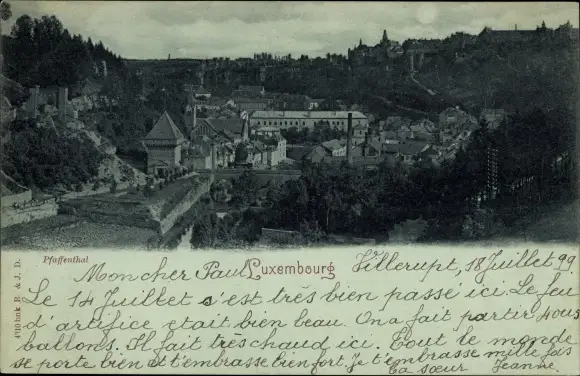 Pfaffenthal
Luxembourg
Mon cher Paul Villerupt, 18 Juillet 99
Le 14 Juillet s'est très bien passé ici. Le feu
d'artifice etait bien beau. On a fait partir 4
ballons. Il fait très chaud ici. Tout le monde
se porte bien et t'embrasse bien fort. Je t'embrasse mille fois
ta sœur Jeanne.
R & J. D.